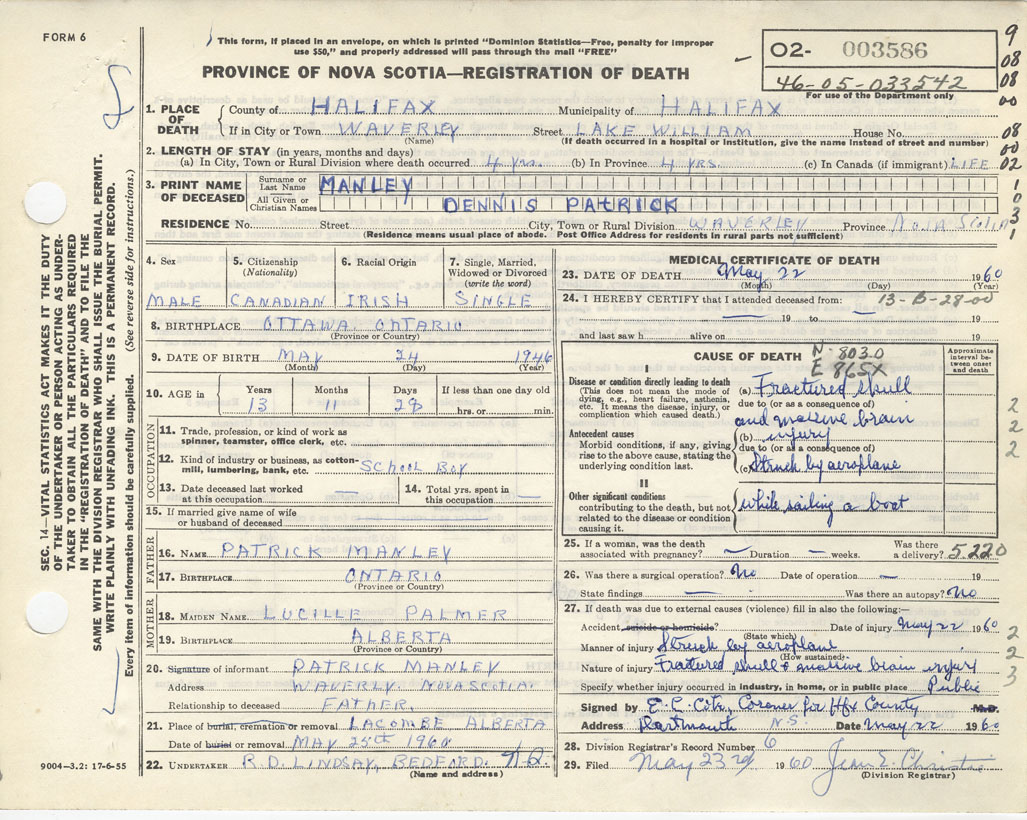 FORM 6
This form, if placed in an envelope, on which is printed "Dominion Statistics—Free, penalty for improper
use $50," and properly addressed will pass through the mail "FREE"
PROVINCE OF NOVA SCOTIA—REGISTRATION OF DEATH
02- 003586
46-05-033542
For use of the Department only
9
08
08
00
08
00
02
1
0
3
1
1. PLACE OF DEATH
County of HALIFAX Municipality of HALIFAX
If in City or Town WAVERLEY Street LAKE WILLIAM House No.
(Name) (If death occurred in a hospital or institution, give the name instead of street and number)
2. LENGTH OF STAY (in years, months and days)
(a) In City, Town or Rural Division where death occurred 4 yrs. (b) In Province 4 YRS. (c) In Canada (if immigrant) LIFE
3. PRINT NAME OF DECEASED
Surname or Last Name MANLEY
All Given or Christian Names DENNIS PATRICK
RESIDENCE No. Street City, Town or Rural Division WAVERLEY Province Nova Scotia
(Residence means usual place of abode. Post Office Address for residents in rural parts not sufficient)
4. Sex
MALE
5. Citizenship (Nationality)
CANADIAN
6. Racial Origin
IRISH
7. Single, Married, Widowed or Divorced (write the word)
SINGLE
8. BIRTHPLACE OTTAWA ONTARIO
(Province or Country)
9. DATE OF BIRTH MAY 24 1946
(Month) (Day) (Year)
10. AGE in
Years Months Days If less than one day old
13 11 28 hrs. or min.
OCCUPATION
11. Trade, profession, or kind of work as spinner, teamster, office clerk, etc.
12. Kind of industry or business, as cotton-mill, lumbering, bank, etc. School Boy
13. Date deceased last worked at this occupation —
14. Total yrs. spent in this occupation —
15. If married give name of wife or husband of deceased
FATHER
16. NAME PATRICK MANLEY
17. BIRTHPLACE ONTARIO
(Province or Country)
MOTHER
18. MAIDEN NAME LUCILLE PALMER
19. BIRTHPLACE ALBERTA
(Province or Country)
20. Signature of informant PATRICK MANLEY
Address WAVERLY. NOVA SCOTIA.
Relationship to deceased FATHER.
21. Place of burial, cremation or removal LACOMBE ALBERTA
Date of burial or removal MAY 25th 1960
22. UNDERTAKER R.D. LINDSAY, BEDFORD.
(Name and address)
9004—3.2: 17-6-55
SEC. 14—VITAL STATISTICS ACT MAKES IT THE DUTY
OF THE UNDERTAKER OR PERSON ACTING AS UNDER-
TAKER TO OBTAIN ALL THE PARTICULARS REQUIRED
IN THE "REGISTRATION OF DEATH" AND TO FILE THE
SAME WITH THE DIVISION REGISTRAR WHO SHALL ISSUE THE BURIAL PERMIT.
WRITE PLAINLY WITH UNFADING INK. THIS IS A PERMANENT RECORD.
Every item of information should be carefully supplied. (See reverse side for instructions.)
MEDICAL CERTIFICATE OF DEATH
23. DATE OF DEATH May 22 1960
(Month) (Day) (Year)
24. I HEREBY CERTIFY that I attended deceased from: 13-B-28-00
— 19 to — 19
and last saw h alive on 19
CAUSE OF DEATH
N-803.0
E 865X
Approximate interval between onset and death
I
Disease or condition directly leading to death
(This does not mean the mode of dying, e.g., heart failure, asthenia, etc. It means the disease, injury, or complication which caused death.)
(a) Fractured skull
due to (or as a consequence of)
and massive brain
Antecedent causes
Morbid conditions, if any, giving rise to the above cause, stating the underlying condition last.
(b) injury
due to (or as a consequence of)
(c) Struck by aeroplane
II
Other significant conditions contributing to the death, but not related to the disease or condition causing it.
while sailing a boat
2
2
2
25. If a woman, was the death associated with pregnancy? — Duration — weeks. Was there a delivery? 5.220
26. Was there a surgical operation? No Date of operation — 19
State findings — Was there an autopsy? No
27. If death was due to external causes (violence) fill in also the following:—
Accident, suicide or homicide? Date of injury May 22 1960
(State which)
Manner of injury Struck by aeroplane
(How sustained)
Nature of injury Fractured skull & massive brain injury
Specify whether injury occurred in industry, in home, or in public place Public
2
2
3
Signed by Coroner for Hfx County M.D.
Address Dartmouth N.S. Date May 22 1960
28. Division Registrar's Record Number 6
29. Filed May 23rd 1960 Jean E. Christie
(Division Registrar)